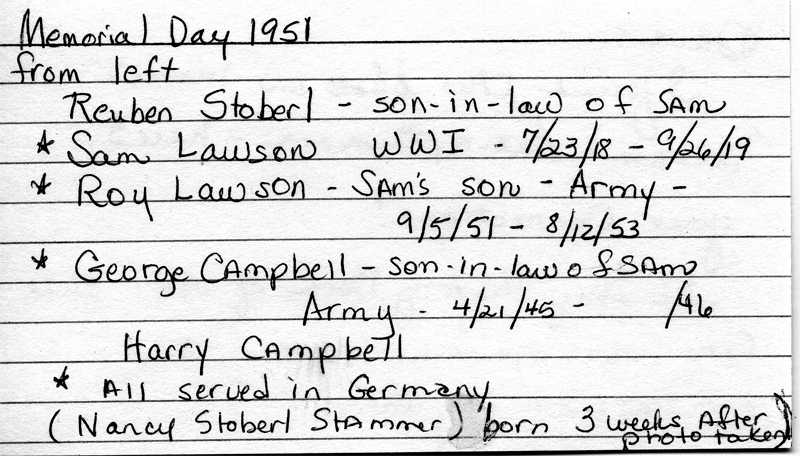 Memorial Day 1951
from left
Reuben Stoberl - son-in-law of SAM
* Sam Lawson WWI - 7/23/18 - 9/26/19
* Roy Lawson - SAM's son - Army -
9/5/51 - 8/12/53
* George CAmpbell - son-in-law of SAM
Army - 4/21/45 - /46
Harry CAmpbell
* All served in Germany
(Nancy Stoberl Stammer) born 3 weeks After
photo taken)